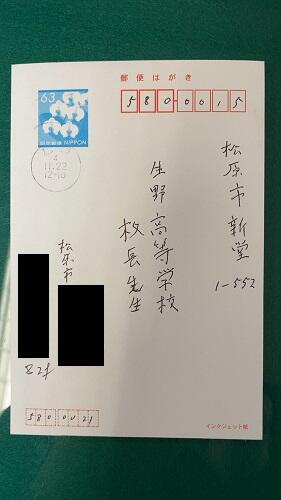 郵便はがき
63
日本郵便 NIPPON
4
11.22
12-18
580-0015
松原市新堂
1-552
生野高等学校
校長先生
松原市
82才
580 0021
インクジェット紙